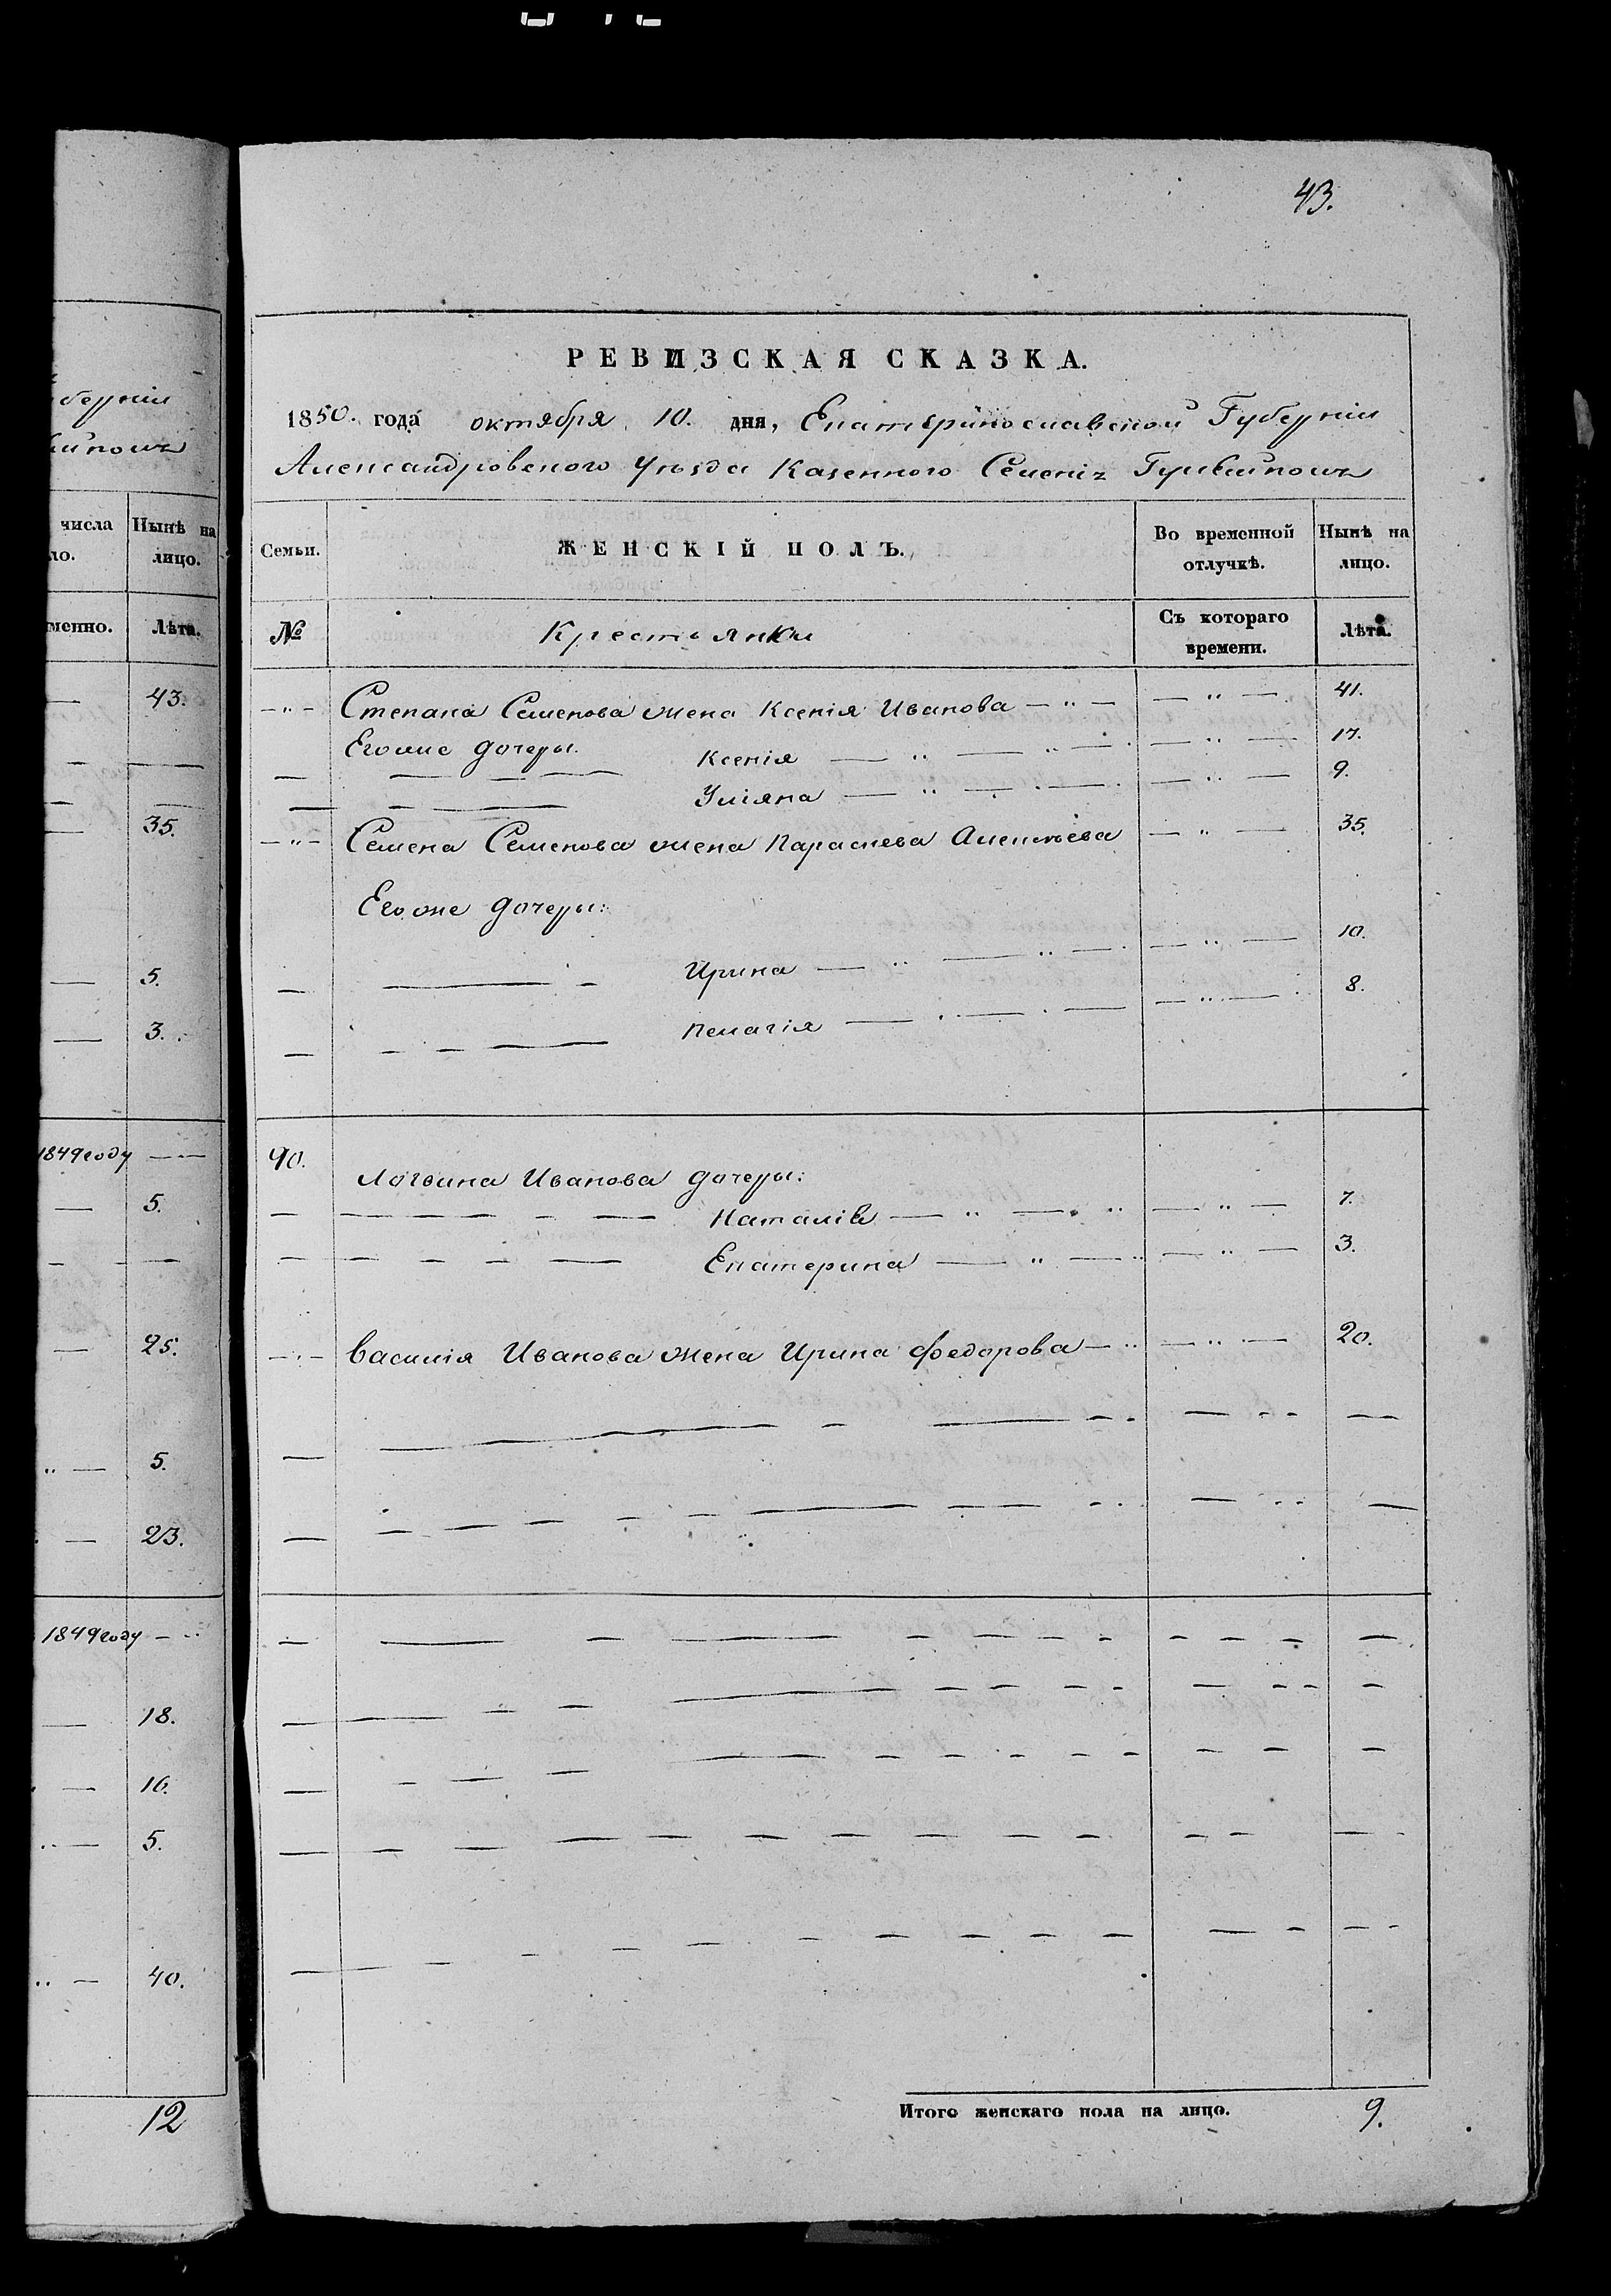 43.
беруніи
числа Нынѣ на
ло. лицо.
менно. Лѣта.
43.
35.
5.
3.
1849 году
5.
25.
5.
23.
1849 году
18.
16.
5.
40.
12
РЕВИЗСКАЯ СКАЗКА.
1850. года октября 10. дня, Екатеринославской Губерніи
Александровского Уѣзда Казенного Селенія
Семьи. ЖЕНСКІЙ ПОЛЪ. Во временной отлучкѣ. Нынѣ на лицо.
№ Крестьянки Съ котораго времени. Лѣта.
Степана Семенова жена Ксенія Иванова 41.
Егоже дочеры.
Ксенія 17.
Уліяна 9.
Семена Семенова жена Параскева Алексѣева 35.
Егоже дочеры:
Ирина 10.
Пелагія 8.
90.
Логвина Иванова дочеры:
Наталія 7.
Екатерина 3.
Василія Иванова жена Ирина Федорова 20.
Итого женскаго пола на лицо. 9.